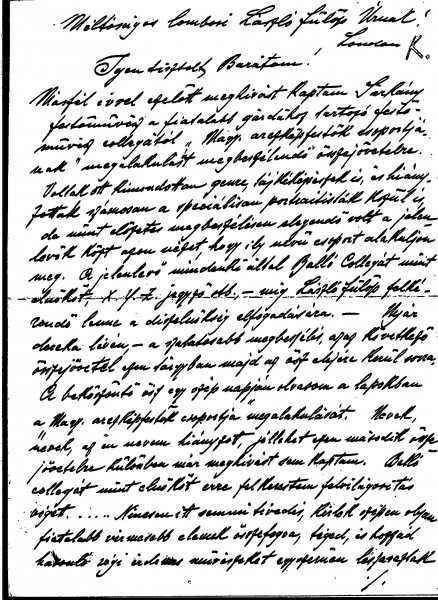 Méltóságos lombosi László Fülöp Úrnak!
London
Igen tisztelt Barátom!
Másfél évvel ezelőtt meghívást kaptam Sárkány
festőművész a fiatalabb gárdához tartozó festő-
művész collegától „Magy. arcképfestők csoportjá-
nak" megalakulását megbeszélendő összejövetelre.
Voltak ott kimondottan genre, tájképfestők is, és hiány-
zottak számosan a speciálisan portraitisták közül is,
de mint előzetes megbeszélésen elegendő volt a jelen-
levők közt azon nézet, hogy ily nevű csoport alakuljon
meg. A jelenlevő mindenki által Balló Collegát mint
elnököt X Y. Z jegyző stb. – míg László Fülöp felké-
rendő lenne a díszelnökség elfogadására. – Nyár
dereka lévén – a  megbeszélés, azaz következő
összejövetel ezen tárgyban majd az ősz elejére kerül sorra.
A beköszöntő ősz egy szép napján olvasom a lapokban
a Magy. arcképfestők csoportja megalakulását. Nevek,
nevek, az én nevem hiányzott, jóllehet ezen második össze-
jövetelre különben már meghívást sem kaptam. Balló
collegát mint elnököt erre felkerestem felvilágosítás
végett. ..... Nincsen itt semmi tévedés, kérlek szépen olyan
fiatalabb  elemek összefogva, téged, is hozzád
hasonló régi érdemes művészeket egyszerűen